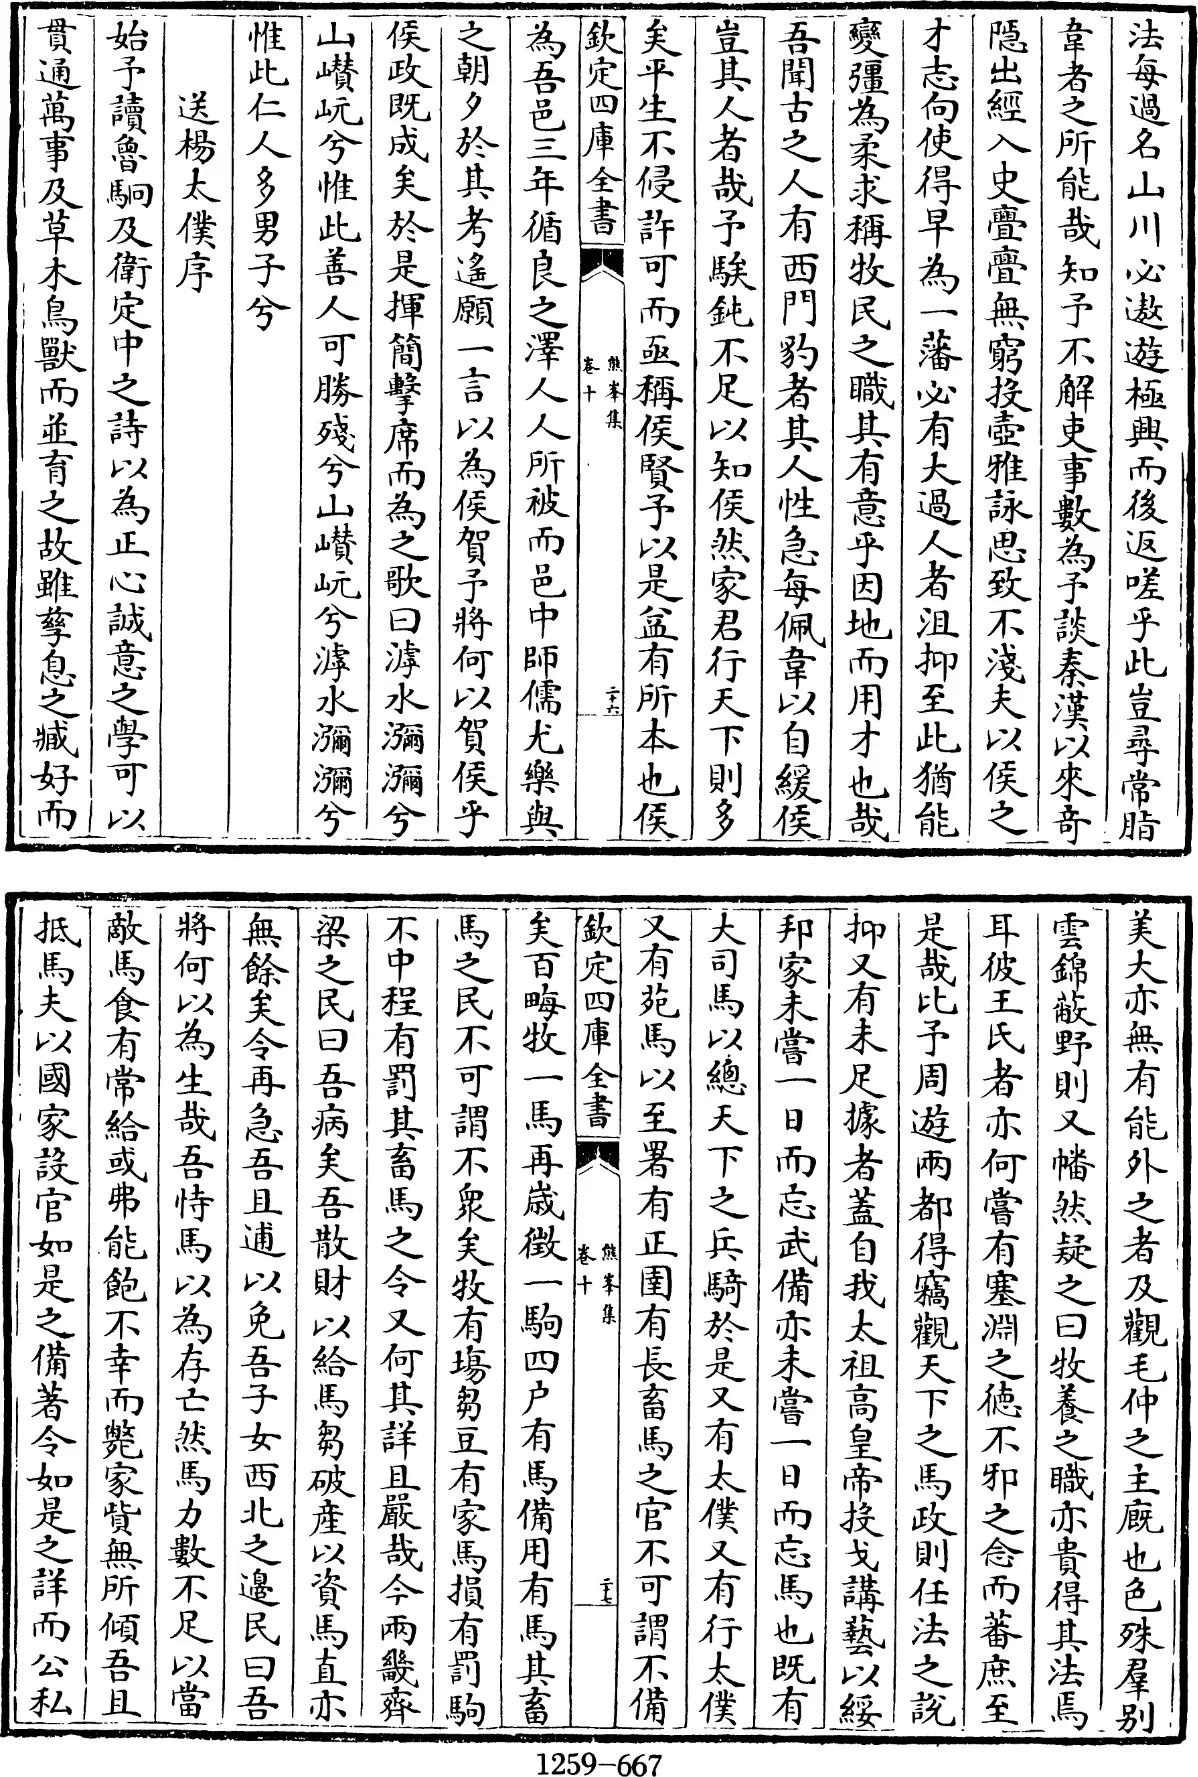 法每過名山川必遨遊極興而後返嗟乎此豈尋常脂
韋者之所能哉知予不解吏事數為予談秦漢以來竒
隠出經入史亹亹無窮投壺雅詠思致不淺夫以侯之
才志向使得早為一藩必有大過人者沮抑至此猶能
變彊為柔求稱牧民之職其有意乎因地而用才也哉
吾聞古之人有西門豹者其人性急每佩韋以自緩侯
豈其人者哉予騃鈍不足以知侯然家君行天下則多
矣平生不侵許可而亟稱侯賢予以是益有所本也侯
欽定四庫全書
熊峯集
卷十
二十六
為吾邑三年循良之澤人人所被而邑中師儒尤樂與
之朝夕於其考遙願一言以為侯賀予將何以賀侯乎
侯政既成矣於是揮簡擊席而為之歌曰滹水瀰瀰兮
山巑岏兮惟此善人可勝殘兮山巑岏兮滹水瀰瀰兮
惟此仁人多男子兮
送楊太僕序
始予讀魯駉及衛定中之詩以為正心誠意之學可以
貫通萬事及草木鳥獸而並育之故雖孳息之臧好而
美大亦無有能外之者及觀毛仲之主廐也色殊羣别
雲錦蔽野則又幡然疑之曰牧養之職亦貴得其法焉
耳彼王氏者亦何嘗有塞淵之德不邪之念而蕃庶至
是哉比予周遊兩都得竊觀天下之馬政則任法之説
抑又有未足據者蓋自我太祖高皇帝投戈講藝以綏
邦家未嘗一日而忘武備亦未嘗一日而忘馬也既有
大司馬以總天下之兵騎於是又有太僕又有行太僕
又有苑馬以至署有正圉有長畜馬之官不可謂不備
欽定四庫全書
熊峯集
卷十
二十七
矣百畮牧一馬再歲徵一駒四户有馬備用有馬其畜
馬之民不可謂不衆矣牧有塲芻豆有家馬損有罰駒
不中程有罰其畜馬之令又何其詳且嚴哉今兩畿齊
梁之民曰吾病矣吾散財以給馬芻破産以資馬直亦
無餘矣令再急吾且逋以免吾子女西北之邊民曰吾
將何以為生哉吾恃馬以為存亡然馬力數不足以當
敵馬食有常給或弗能飽不幸而斃家貲無所傾吾且
抵馬夫以國家設官如是之備著令如是之詳而公私
1259-667